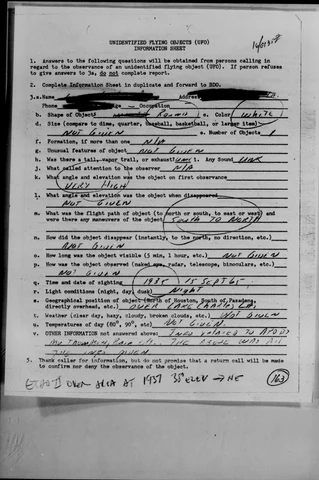 UNIDENTIFIED FLYING OBJECTS (UFO)
INFORMATION SHEET
1. Answers to the following questions will be obtained from persons calling in
regard to the observance of an unidentified flying object (UFO). If person refuses
to give answers to 3a, do not complete report.
2. Complete Information Sheet in duplicate and forward to BDO.
3.a. Name Address
Phone Age Occupation
b. Shape of Object ROUND c. Color WHITE
d. Size (compare to dime, quarter, baseball, basketball, or larger item)
NOT GIVEN e. Number of Objects 1
f. Formation, if more than one N/A
g. Unusual features of object NOT GIVEN
h. Was there a tail, vapor trail, or exhaust UNK. Any Sound UNK
j. What called attention to the observer N/A
k. What angle and elevation was the object on first observance
VERY HIGH
l. What angle and elevation was the object when disappeared
NOT GIVEN
m. What was the flight path of object (to north or south, to east or west) and
were there any maneuvers of the object SOUTH TO NORTH
n. How did the object disappear (instantly, to the north, no direction, etc.)
NOT GIVEN
o. How long was the object visible (5 min, 1 hour, etc.) NOT GIVEN
p. How was the object observed (naked eye, radar, telescope, binoculars, etc.)
NOT GIVEN
q. Time and date of sighting 1935 15 SEPT 65
r. Light conditions (night, day, dusk) NIGHT
s. Geographical position of object (North of Houston, South of Pasadena,
directly overhead, etc.) OVER LAKE CHARLES LA
t. Weather (clear day, hazy, cloudy, broken clouds, etc.) NOT GIVEN
u. Temperatures of day (80°, 90°, etc) NOT GIVEN
v. OTHER INFORMATION not answered above: INFO RELAYED TO
THE ABOVE WAS ALL
THE INFO GIVEN
5. Thank caller for information, but do not promise that a return call will be made
to confirm nor deny the observance of the object.
ECHO II OVER AREA AT 1937 35° ELEV → NE
163